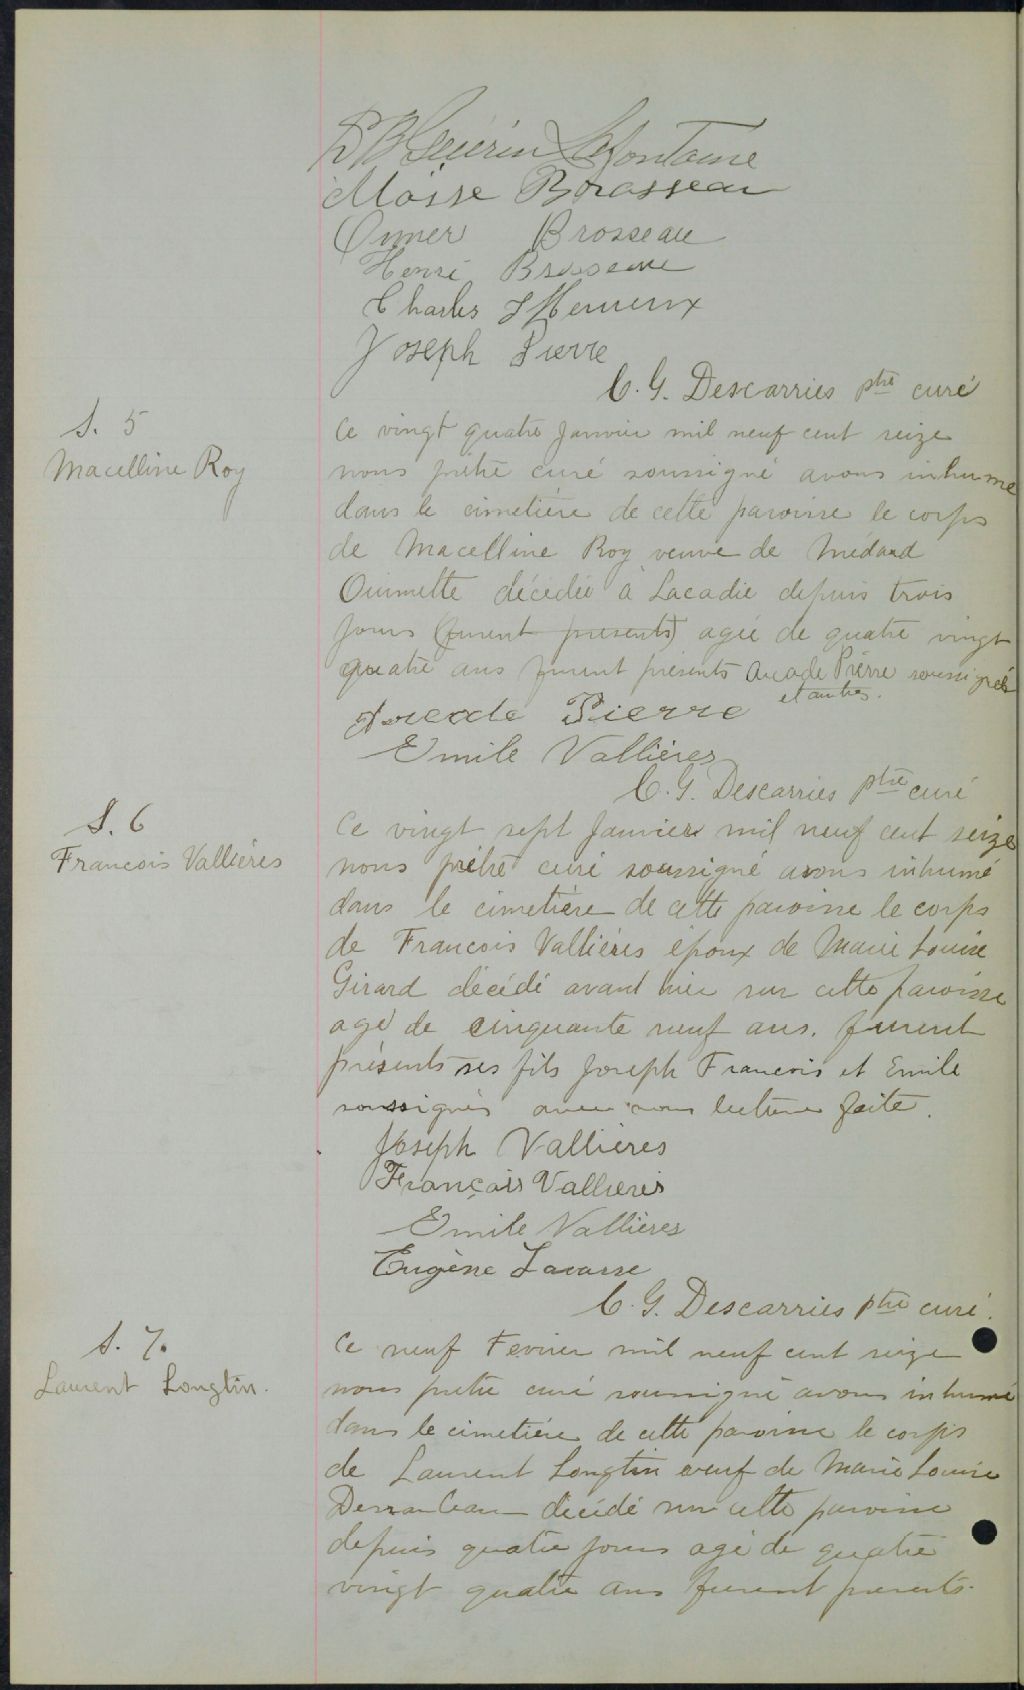 Lafontaine
Moïsse Borasseau
Omer Brosseau
Henri Brosseau
Charles L'Hemieux
Joseph Pierre
C. G. Descarries ptre curé
S. 5
Macelline Roy
Ce vingt quatre Janvier mil neuf cent seize
nous prêtre curé soussigné avons inhumé
dans le cimetière de cette paroisse le corps
de Macelline Roy veuve de Médard
Ouimette décédée à Lacadie depuis trois
jours (furent présents) agée de quatre vingt
quatre ans furent présents Arcade Pierre soussignés
et autres.
Arcade Pierre
Emile Vallières
C. G. Descarries ptre curé
S. 6
Francois Vallières
Ce vingt sept Janvier mil neuf cent seize
nous prêtre curé soussigné avons inhumé
dans le cimetière de cette paroisse le corps
de Francois Vallières époux de Marie Louise
Girard décédé avant hier sur cette paroisse
agé de cinquante neuf ans. furent
présents ses fils Joseph Francois et Emile
soussignés avec nous lecture faite.
Joseph Vallières
François Vallieres
Emile Vallières
Eugène Lavasse
C. G. Descarries ptre curé.
S. 7.
Laurent Longtin.
Ce neuf Fevrier mil neuf cent seize
nous prêtre curé soussigné avons inhumé
dans le cimetière de cette paroisse le corps
de Laurent Longtin veuf de Marie Louise
décédé sur cette paroisse
depuis quatre jours agé de quatre
vingt quatre ans furent presents.